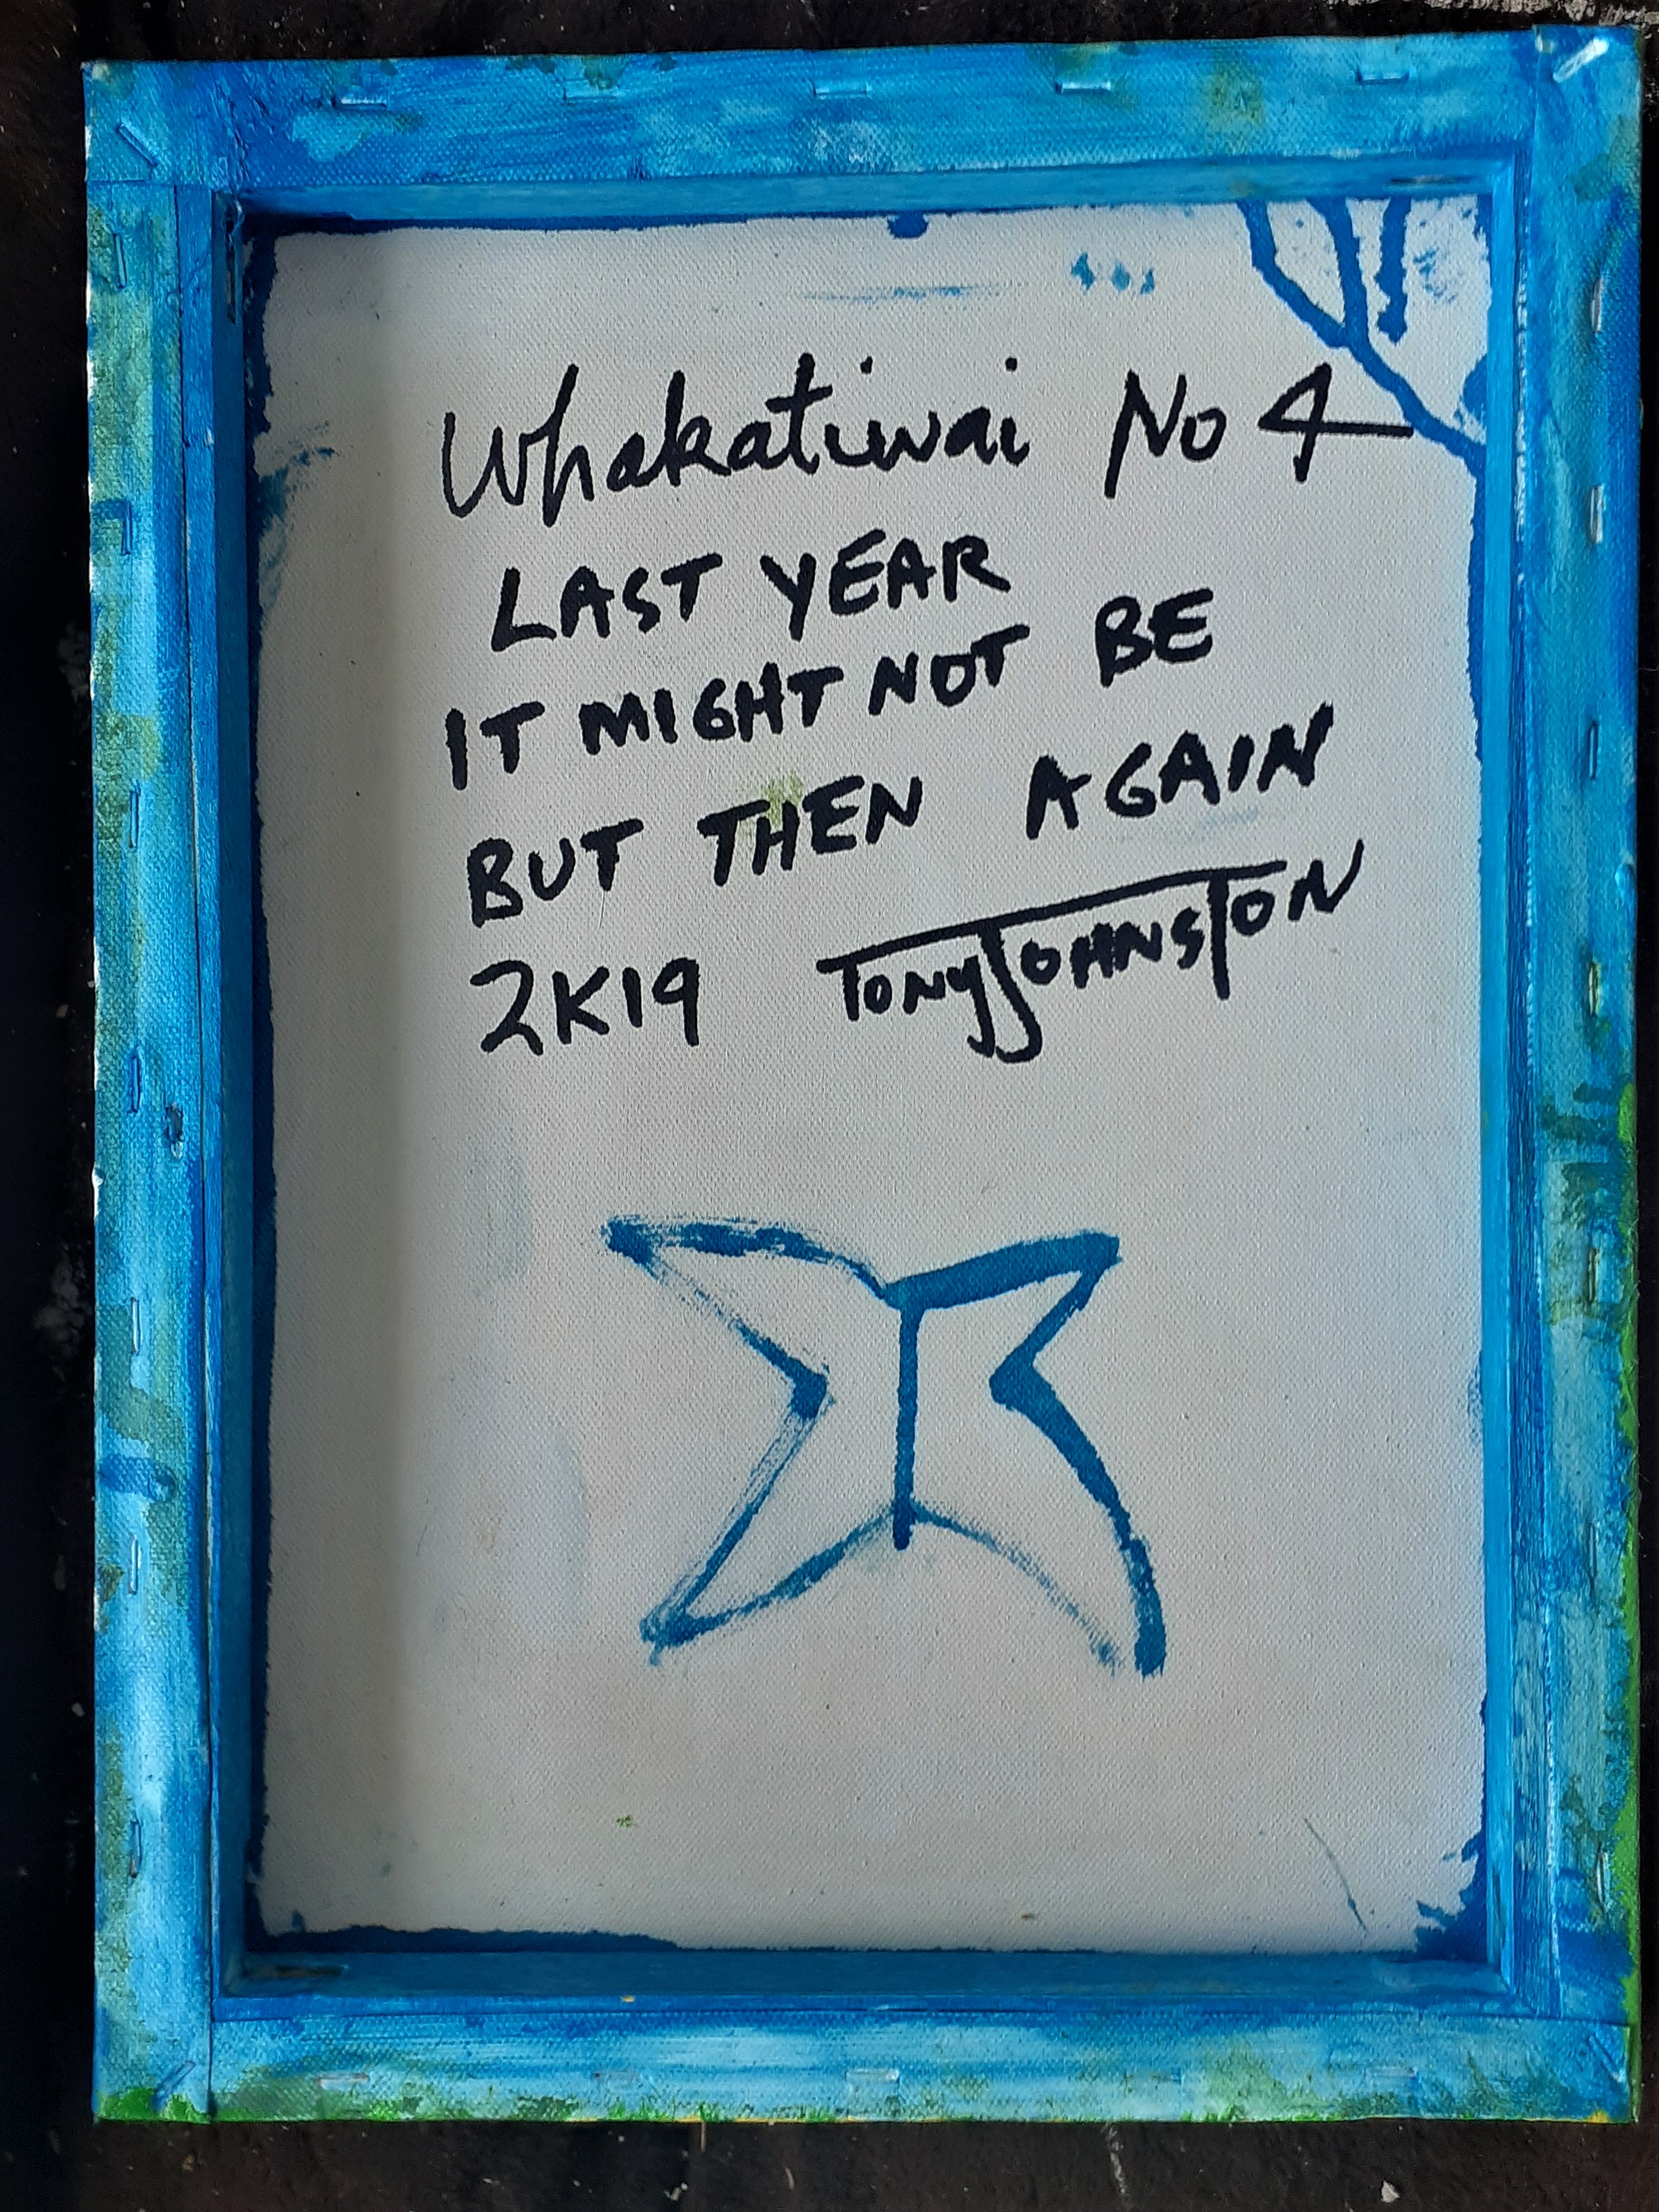 Whakatiwai No 4
LAST YEAR
IT MIGHT NOT BE
BUT THEN AGAIN
2K19 TONYJOHNSTON